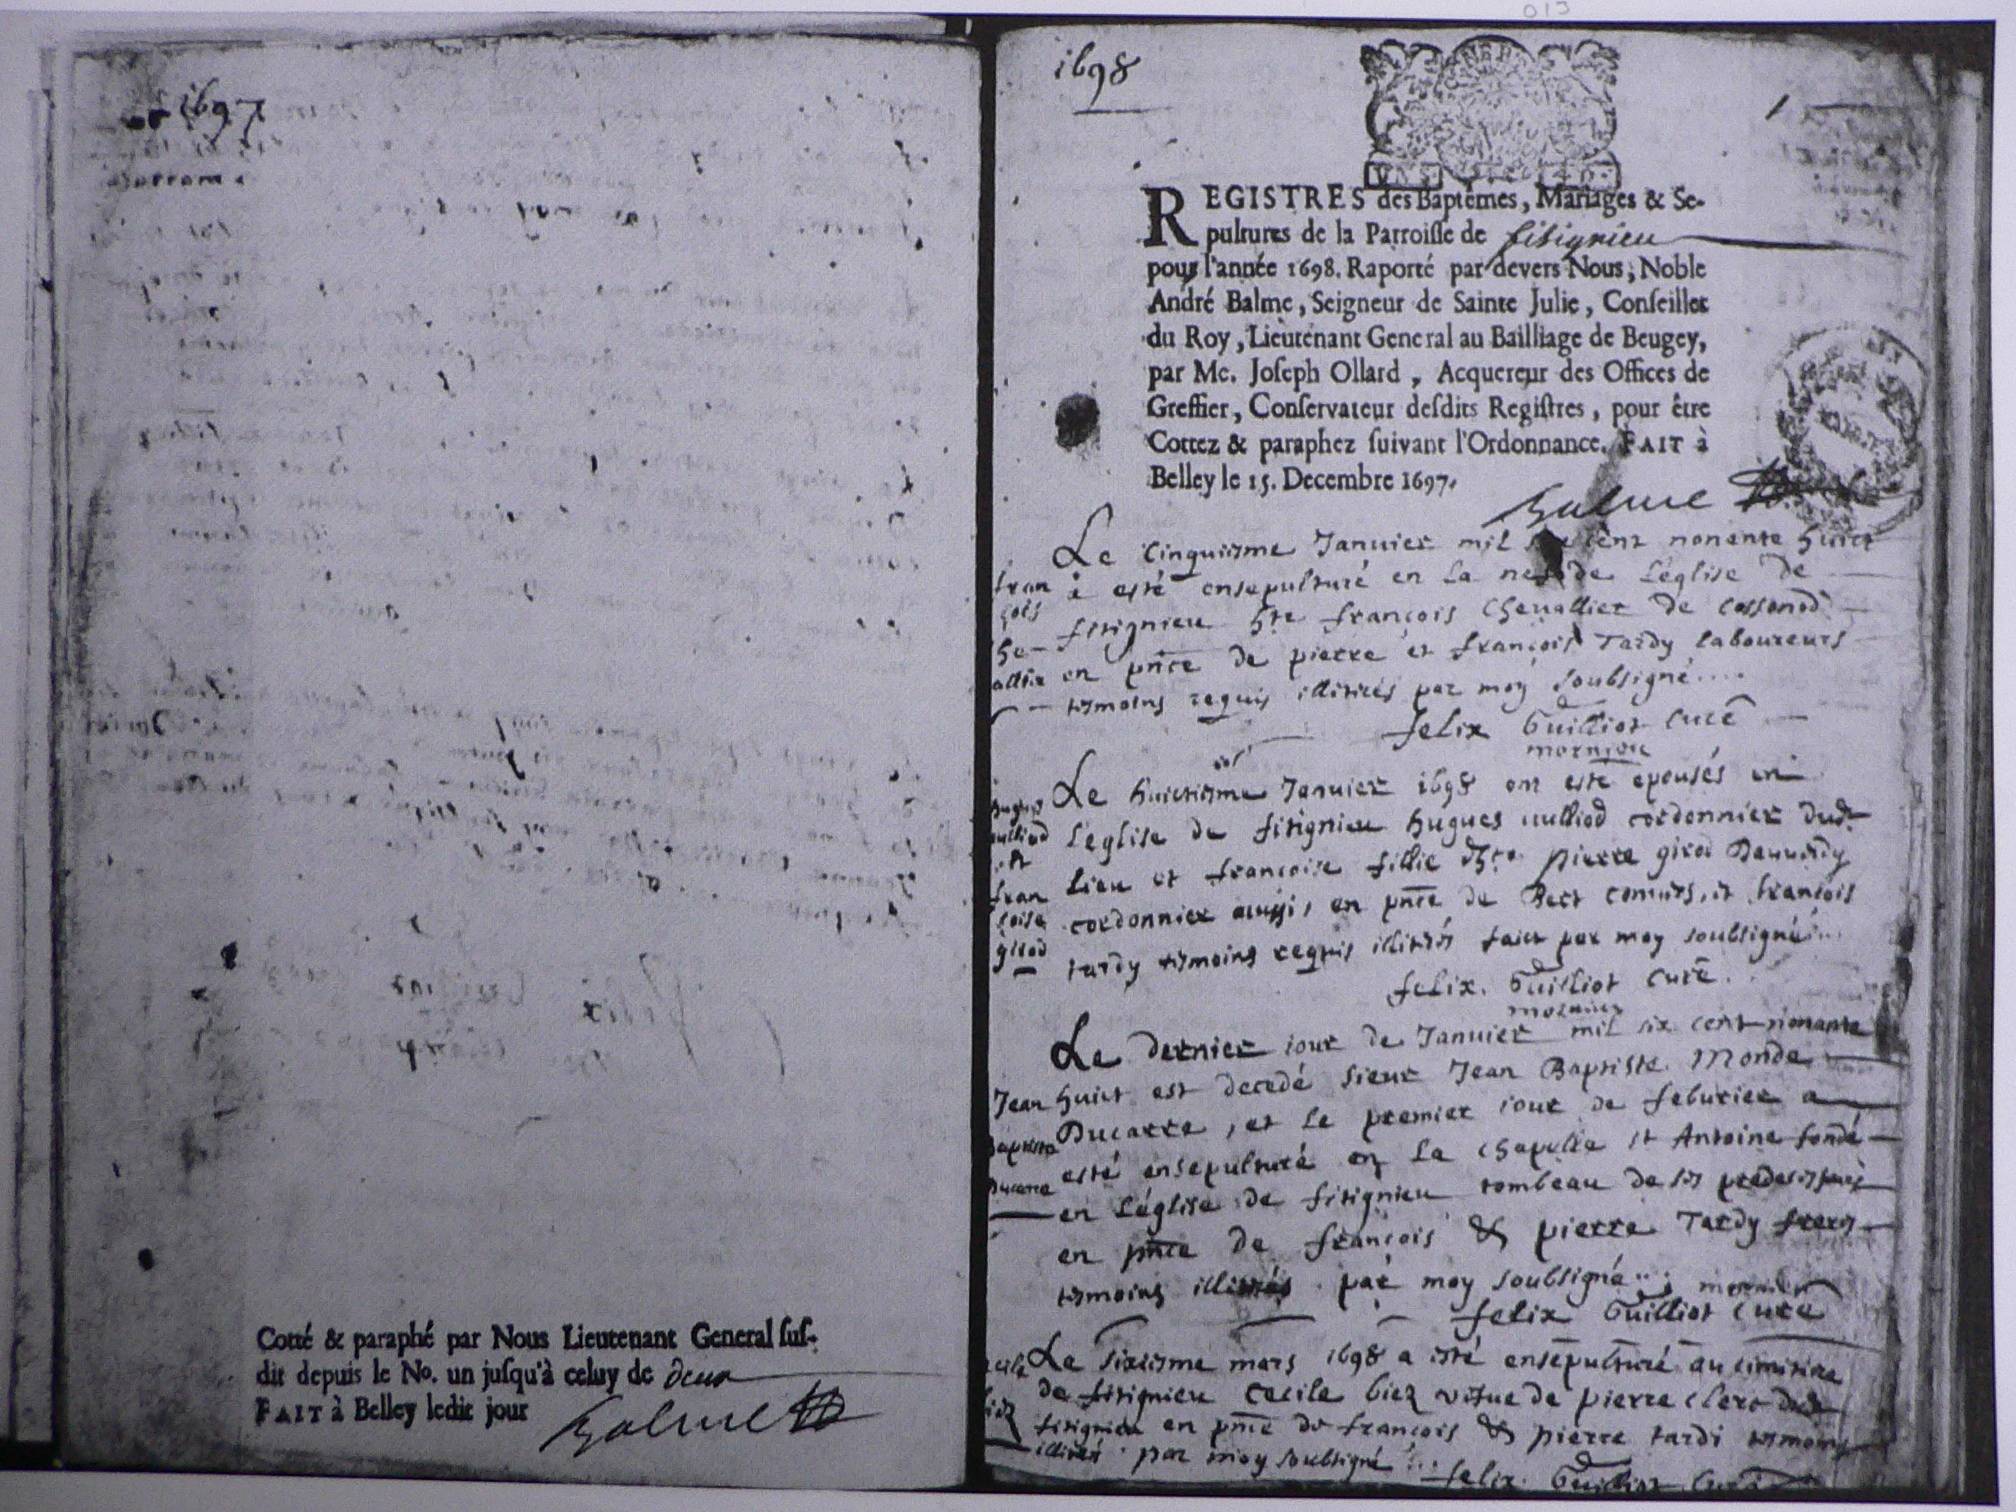 1697
Cotté & paraphé par Nous Lieutenant General suſ-
dit depuis le No. un juſqu'à celuy de deux
FAIT à Belley ledit jour
Balme
013
1698
1
REGISTRES des Baptêmes, Mariages & Se-
pultures de la Parroiſſe de fitignieu
pour l'année 1698. Raporté par devers Nous, Noble
André Balme, Seigneur de Sainte Julie, Conſeiller
du Roy, Lieutenant General au Bailliage de Beugey,
par Me. Joſeph Ollard, Acquereur des Offices de
Greffier, Conſervateur deſdits Regiſtres, pour être
Cottez & paraphez ſuivant l'Ordonnance. FAIT à
Belley le 15. Decembre 1697.
Balme
Le Cinquiesme Januier mil six cent nonante huict
fran
çois
a esté ensepulturé en la nef de Léglise de
fitignieu hte françois Cheuallier de Cossonod
en pnce de pierre et françois Tardy laboureurs
tesmoins requis illitirés par moy soubsigné....
felix Guilliot Curé
mornieu
Le huictiesme Januier 1698 ont esté epousés en
Hugues
uulliod
et
fran
çoise
girod
Léglise de fitignieu hugues uulliod cordonnier dud.
lieu et francoise fillie pierre girod
cordonnier aussi, en pnce de et francois
tardy tesmoins requis illitirés faict par moy soubsigné...
felix. Guilliot Curé.
mornieu
Le dernier iour de Januier mil six cent nonante
Jean
Baptiste
Ducarre
huict est decedé sieur Jean Baptiste Monde
Ducarre, et le premier iour de feburier a
esté ensepulturé en La chapelle st Antoine fondé
en Léglise de fitignieu tombeau de ses
en pnce de françois & pierre Tardy freres
tesmoins illitirés par moy soubsigné...
mornieu
felix Guilliot Curé
Le sixiesme mars 1698 a esté ensepulturé au cimitiere
de fitignieu Cecile biez vefue de pierre Clerc dud
fitignieu en pnce de françois & pierre tardi tesmoins
illitirés par moy soubsigné...
felix. Guilliot Curé